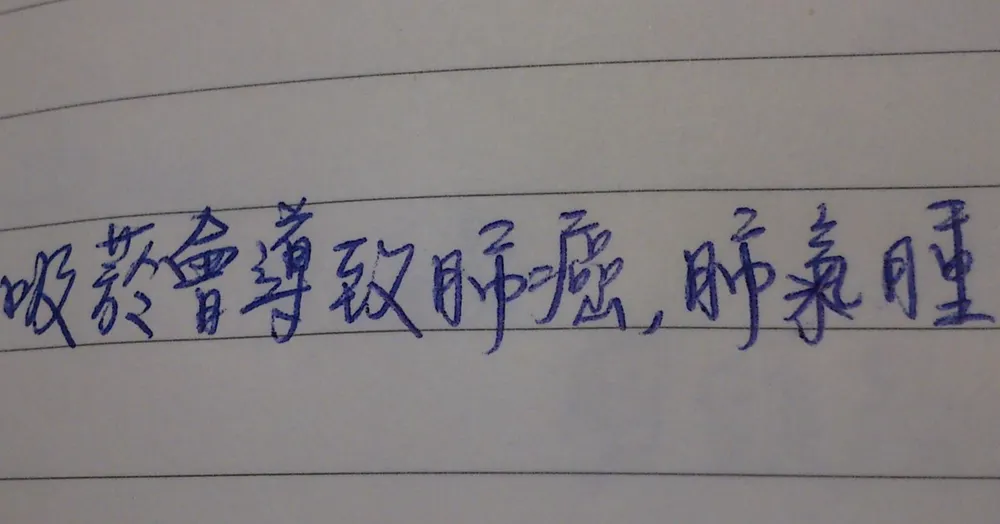 吸菸會導致肺癌,肺氣腫